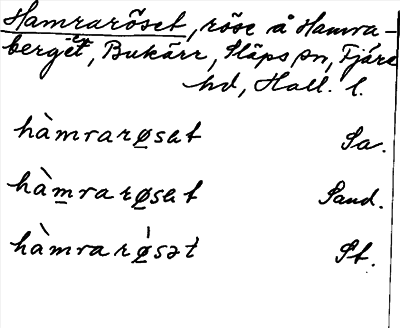 Hamraröset, röse å Hamra-
berget, Bukärr, Släps sn, Fjäre
hd, Hall. l.
hàmrarøsət Sa.
hàm̲rarø̲sət Sand.
hàmrarǿ̲sət St.